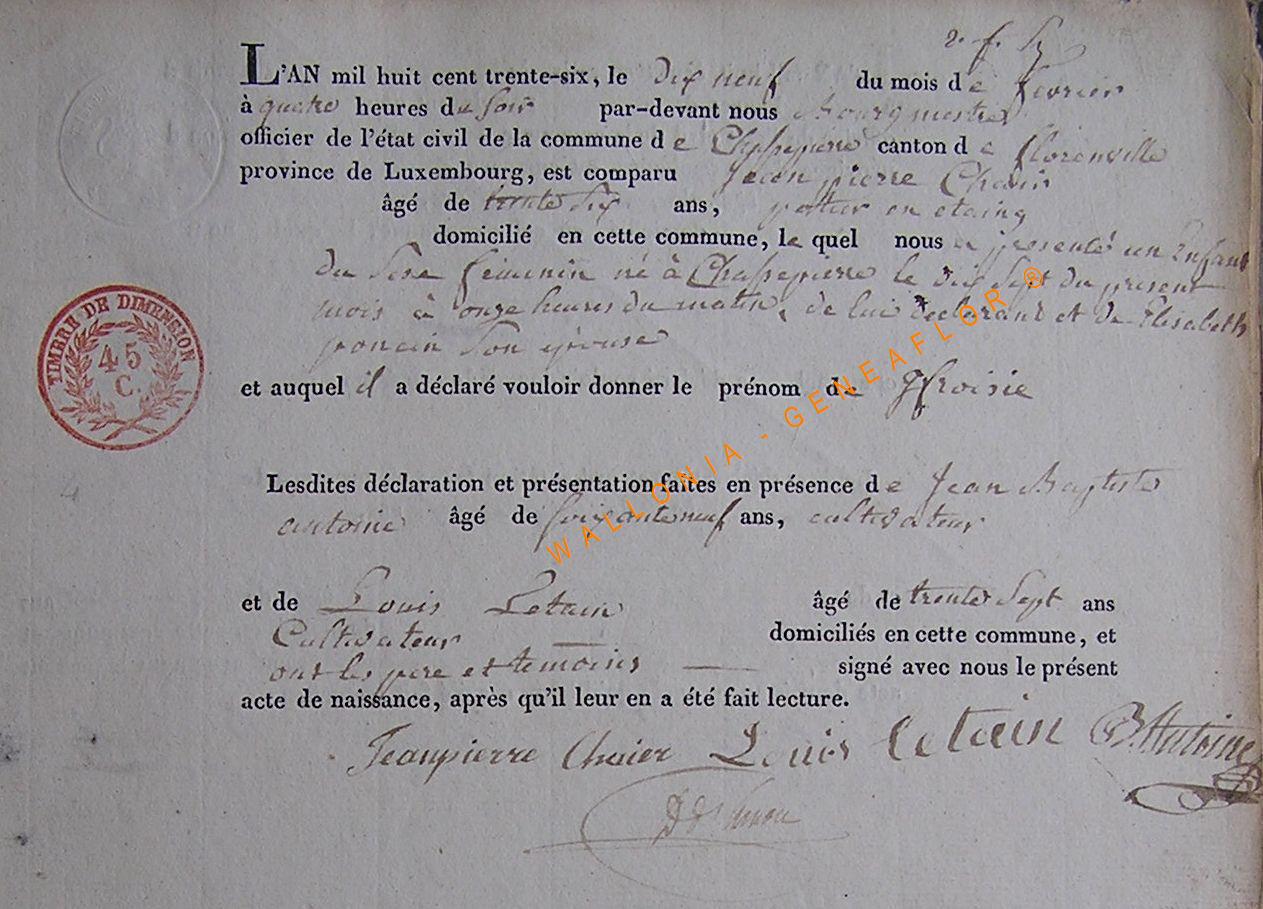 L'AN mil huit cent trente-six, le dix neuf du mois de fevrier
à quatre heures du soir par-devant nous Bourgmestre
officier de l'état civil de la commune de Chassepierre canton de florenville
province de Luxembourg, est comparu Jean pierre
âgé de trente six ans, en
domicilié en cette commune, le quel nous a presenté un Enfant
du sexe féminin né à Chassepierre le dix sept du present
mois à onze heures du matin, de lui declarant et de Elisabeth
poncin son épouse
et auquel il a déclaré vouloir donner le prénom de
Lesdites déclaration et présentation faites en présence de Jean Baptiste
antoine âgé de soixante neuf ans, cultivateur
et de Louis Letain âgé de trente sept ans
Cultivateur domiciliés en cette commune, et
ont les pere et temoins signé avec nous le présent
acte de naissance, après qu'il leur en a été fait lecture.
Jeanpierre Louis Letain B. Antoine
TIMBRE DE DIMENSION
45
C.
WALLONIA - GENEAFLOR ®